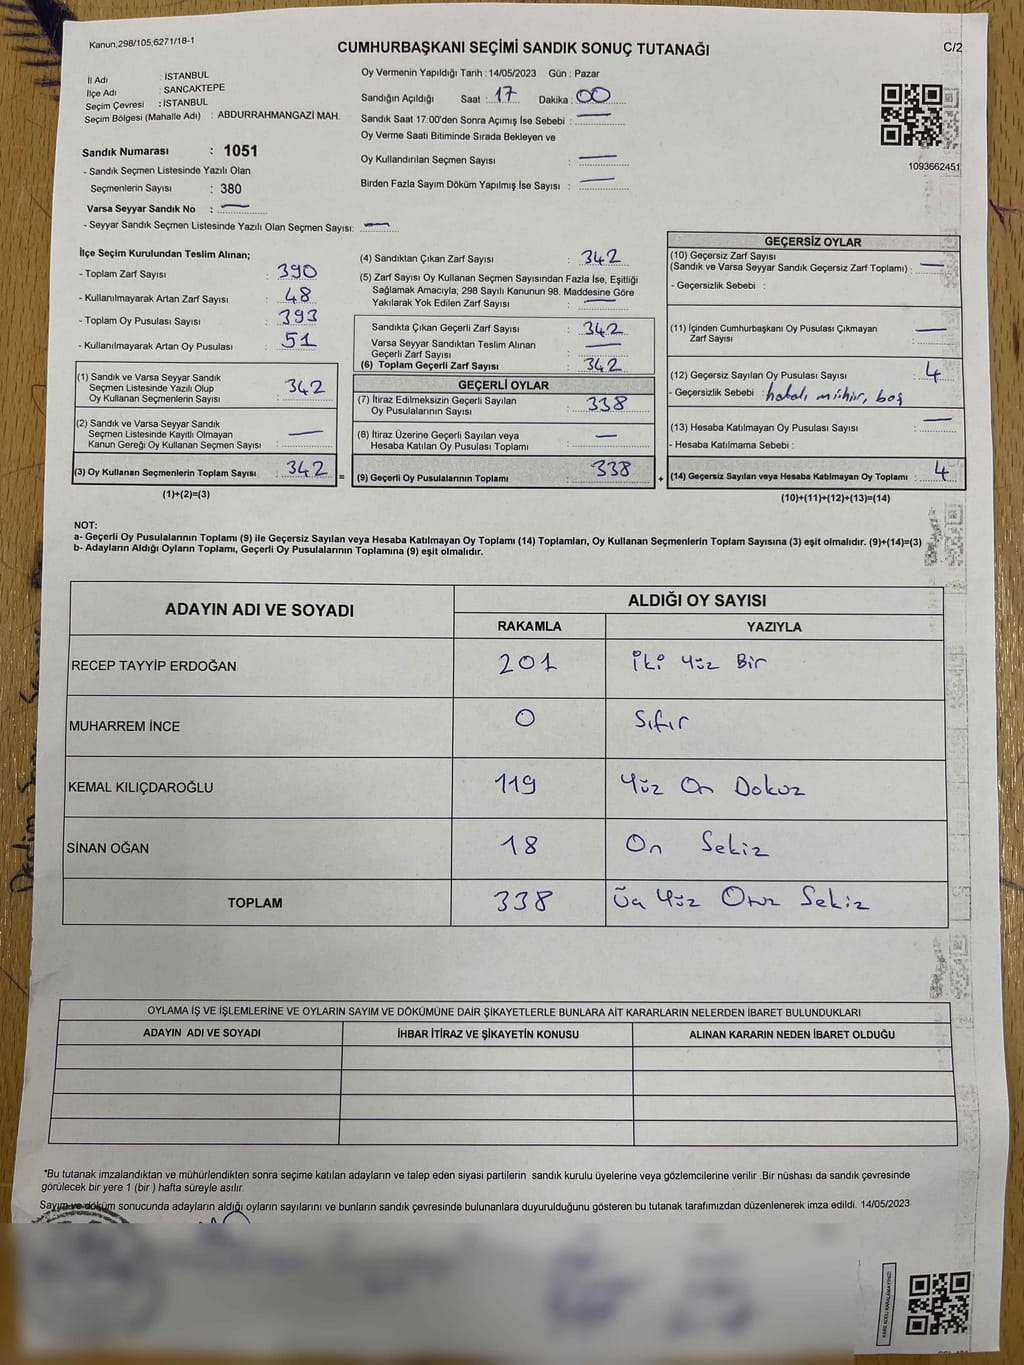 Kanun;298/105;6271/18-1
CUMHURBAŞKANI SEÇİMİ SANDIK SONUÇ TUTANAĞI
C/2
İl Adı : İSTANBUL
İlçe Adı : SANCAKTEPE
Seçim Çevresi : İSTANBUL
Seçim Bölgesi (Mahalle Adı) : ABDURRAHMANGAZİ MAH.
Sandık Numarası : 1051
- Sandık Seçmen Listesinde Yazılı Olan
Seçmenlerin Sayısı : 380
Varsa Seyyar Sandık No : —
- Seyyar Sandık Seçmen Listesinde Yazılı Olan Seçmen Sayısı: —
Oy Vermenin Yapıldığı Tarih : 14/05/2023 Gün : Pazar
Sandığın Açıldığı Saat : 17 Dakika : 00
Sandık Saat 17:00'den Sonra Açımış İse Sebebi : —
Oy Verme Saati Bitiminde Sırada Bekleyen ve
Oy Kullandırılan Seçmen Sayısı : —
Birden Fazla Sayım Döküm Yapılmış İse Sayısı : —
1093662451
İlçe Seçim Kurulundan Teslim Alınan;
- Toplam Zarf Sayısı : 390
- Kullanılmayarak Artan Zarf Sayısı : 48
- Toplam Oy Pusulası Sayısı : 393
- Kullanılmayarak Artan Oy Pusulası : 51
(1) Sandık ve Varsa Seyyar Sandık
Seçmen Listesinde Yazılı Olup
Oy Kullanan Seçmenlerin Sayısı : 342
(2) Sandık ve Varsa Seyyar Sandık
Seçmen Listesinde Kayıtlı Olmayan
Kanun Gereği Oy Kullanan Seçmen Sayısı : —
(3) Oy Kullanan Seçmenlerin Toplam Sayısı : 342 =
(1)+(2)=(3)
(4) Sandıktan Çıkan Zarf Sayısı : 342
(5) Zarf Sayısı Oy Kullanan Seçmen Sayısından Fazla İse, Eşitliği
Sağlamak Amacıyla; 298 Sayılı Kanunun 98. Maddesine Göre
Yakılarak Yok Edilen Zarf Sayısı : —
Sandıkta Çıkan Geçerli Zarf Sayısı : 342
Varsa Seyyar Sandıktan Teslim Alınan
Geçerli Zarf Sayısı : —
(6) Toplam Geçerli Zarf Sayısı : 342
GEÇERLİ OYLAR
(7) İtiraz Edilmeksizin Geçerli Sayılan
Oy Pusulalarının Sayısı : 338
(8) İtiraz Üzerine Geçerli Sayılan veya
Hesaba Katılan Oy Pusulaları Toplamı : —
(9) Geçerli Oy Pusulalarının Toplamı : 338 +
GEÇERSİZ OYLAR
(10) Geçersiz Zarf Sayısı
(Sandık ve Varsa Seyyar Sandık Geçersiz Zarf Toplamı) : —
- Geçersizlik Sebebi :
(11) İçinden Cumhurbaşkanı Oy Pusulası Çıkmayan
Zarf Sayısı : —
(12) Geçersiz Sayılan Oy Pusulası Sayısı : 4
- Geçersizlik Sebebi : hatalı mühür, boş
(13) Hesaba Katılmayan Oy Pusulası Sayısı : —
- Hesaba Katılmama Sebebi :
(14) Geçersiz Sayılan veya Hesaba Katılmayan Oy Toplamı : 4
(10)+(11)+(12)+(13)=(14)
NOT:
a- Geçerli Oy Pusulalarının Toplamı (9) ile Geçersiz Sayılan veya Hesaba Katılmayan Oy Toplamı (14) Toplamları, Oy Kullanan Seçmenlerin Toplam Sayısına (3) eşit olmalıdır. (9)+(14)=(3)
b- Adayların Aldığı Oyların Toplamı, Geçerli Oy Pusulalarının Toplamına (9) eşit olmalıdır.
ADAYIN ADI VE SOYADI ALDIĞI OY SAYISI
RAKAMLA YAZIYLA
RECEP TAYYİP ERDOĞAN 201 İki Yüz Bir
MUHARREM İNCE 0 Sıfır
KEMAL KILIÇDAROĞLU 119 Yüz On Dokuz
SİNAN OĞAN 18 On Sekiz
TOPLAM 338 Üç Yüz Otuz Sekiz
OYLAMA İŞ VE İŞLEMLERİNE VE OYLARIN SAYIM VE DÖKÜMÜNE DAİR ŞİKAYETLERLE BUNLARA AİT KARARLARIN NELERDEN İBARET BULUNDUKLARI
ADAYIN ADI VE SOYADI İHBAR İTİRAZ VE ŞİKAYETİN KONUSU ALINAN KARARIN NEDEN İBARET OLDUĞU
*Bu tutanak imzalandıktan ve mühürlendikten sonra seçime katılan adayların ve talep eden siyasi partilerin sandık kurulu üyelerine veya gözlemcilerine verilir .Bir nüshası da sandık çevresinde
görülecek bir yere 1 (bir ) hafta süreyle asılır.
Sayım ve döküm sonucunda adayların aldığı oyların sayılarını ve bunların sandık çevresinde bulunanlara duyurulduğunu gösteren bu tutanak tarafımızdan düzenlenerek imza edildi. 14/05/2023